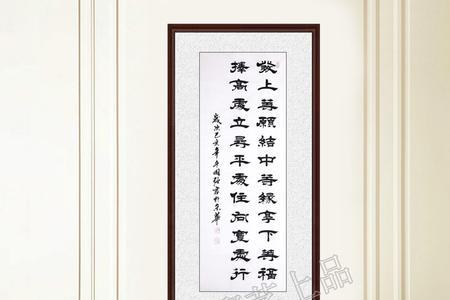 發上等願結中等緣享下等福
擇高處立尋平處住向寬處行
歲次己亥年國書於京華
上品